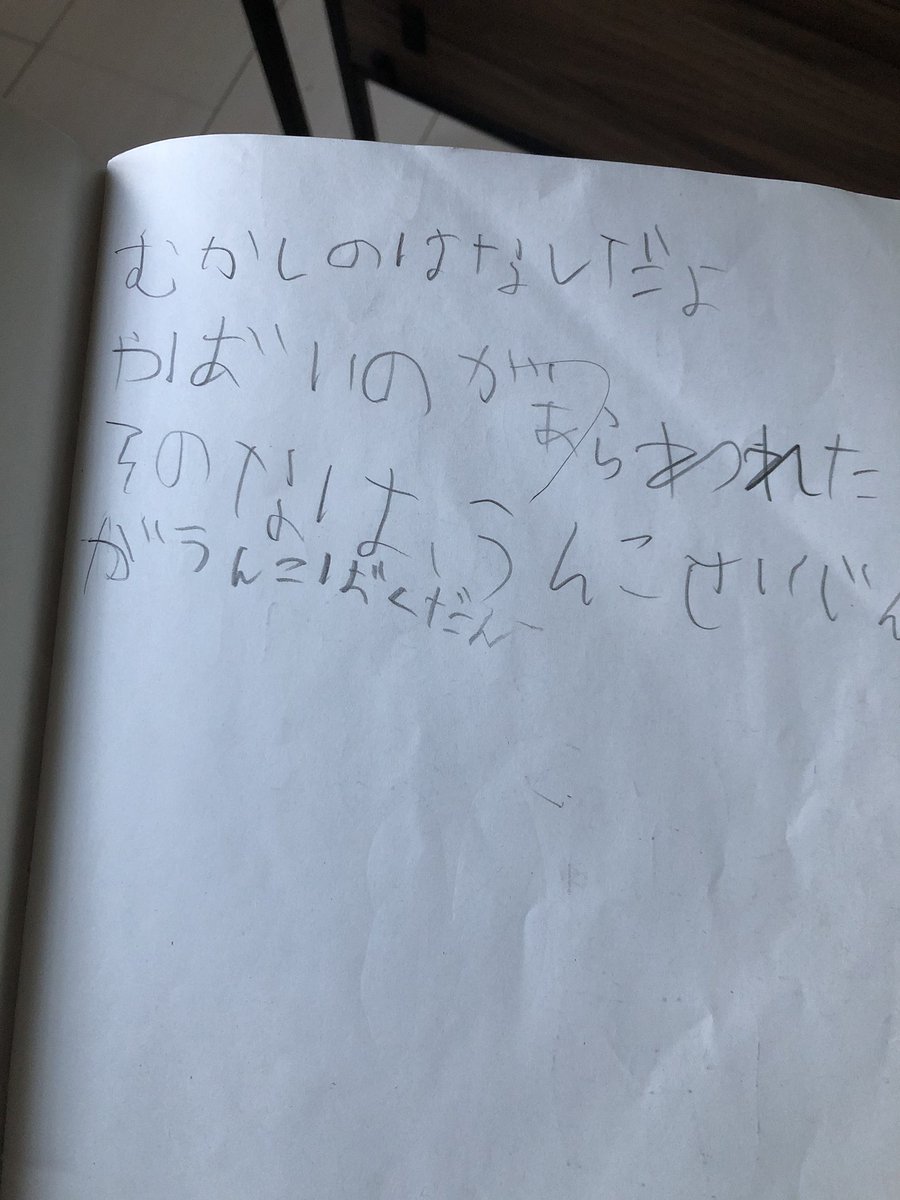 むかしのはなしだよ
やばいのがあらわれた
そのなはうんこせいじん
がうんこばくだん